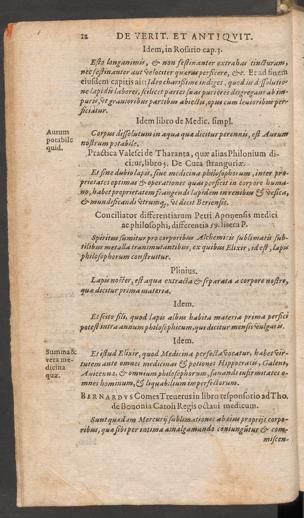 12 DE VERIT. ET ANTIQVIT.
Idem, in Rosario cap. 3.
Esto longanimis, & non festinanter extrahas tincturam,
nec festinanter aut velociter quæras perficere, &c. Et ad finem
eiusdem capitis ait: Ideo charissime indiges, quod in dissolutio-
ne lapidis labores, scilicet partes suas puriores disgregant ab im-
puris, vt grauioribus partibus abiectis, opus cum leuioribus per-
ficiatur.
Idem libro de Medic. simpl.
Aurum
potabile
quid.
Corpus dissolutum in aqua qua dicitur perennis, est Aurum
nostrum potabile.
Practica Valesci de Tharanta, quæ alias Philonium di-
citur, libro 5. De Cura stranguriæ.
Et sine dubio lapis, siue medicina philosophorum, inter pro-
prietates optimas & operationes quas perficit in corpore huma-
no, habet proprietatem frangendi lapidem in renibus & vesica,
& mundificandi vtrumque, vt dicit Beriensis.
Conciliator differentiarum Petri Aponensis medici
ac philosophi, differentia 59. litera P.
Spiritus sumitur pro corporibus Alchemicis sublimatis sub-
tilibus metalla transmutantibus, ex quibus Elixir, id est, lapis
philosophorum construitur.
Plinius.
Lapis noster, est aqua extracta & separata à corpore nostro,
quæ dicitur prima materia.
Idem.
Et scito fili, quod lapis albus habita materia prima perfici
potest intra annum philosophicum qui dicitur mensis vulgaris.
Idem.
Summa &
vera me-
dicina
quæ.
Et istud Elixir, quod Medicina perfecta vocatur, habet vir-
tutem ante omnes medicinas & potiones Hippocratis, Galeni,
Auicennæ, & omnium philosophorum, sanandi infirmitates o-
mnes hominum, & liquabilium imperfectorum.
BERNARDVS Comes Treuerus in libro responsorio ad Tho.
de Bononia Caroli Regis octaui medicum.
Sunt quædam Mercurij sublimationes ab eius propriis corpo-
ribus, qua sibi per intima amalgamando coniunguntur & com-
miscen-